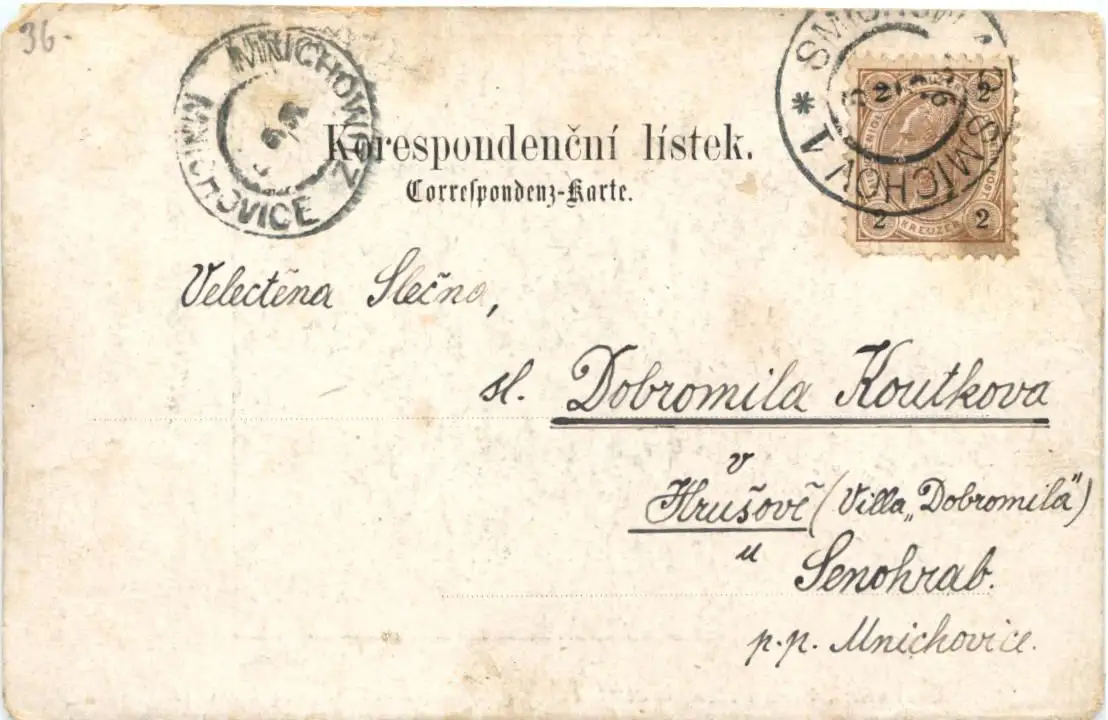 36.
MNICHOWITZ
MNICHOVICE
SMICHOW
SMÍCHOV 1 *
2 2
2 KREUZER 2
Korespondenční lístek.
Correſpondenz-Karte.
Velectěna Slečna,
sl. Dobromila Koutkova
v
Hrušově (Villa „Dobromila")
u
Senohrab.
p.p. Mnichovice.